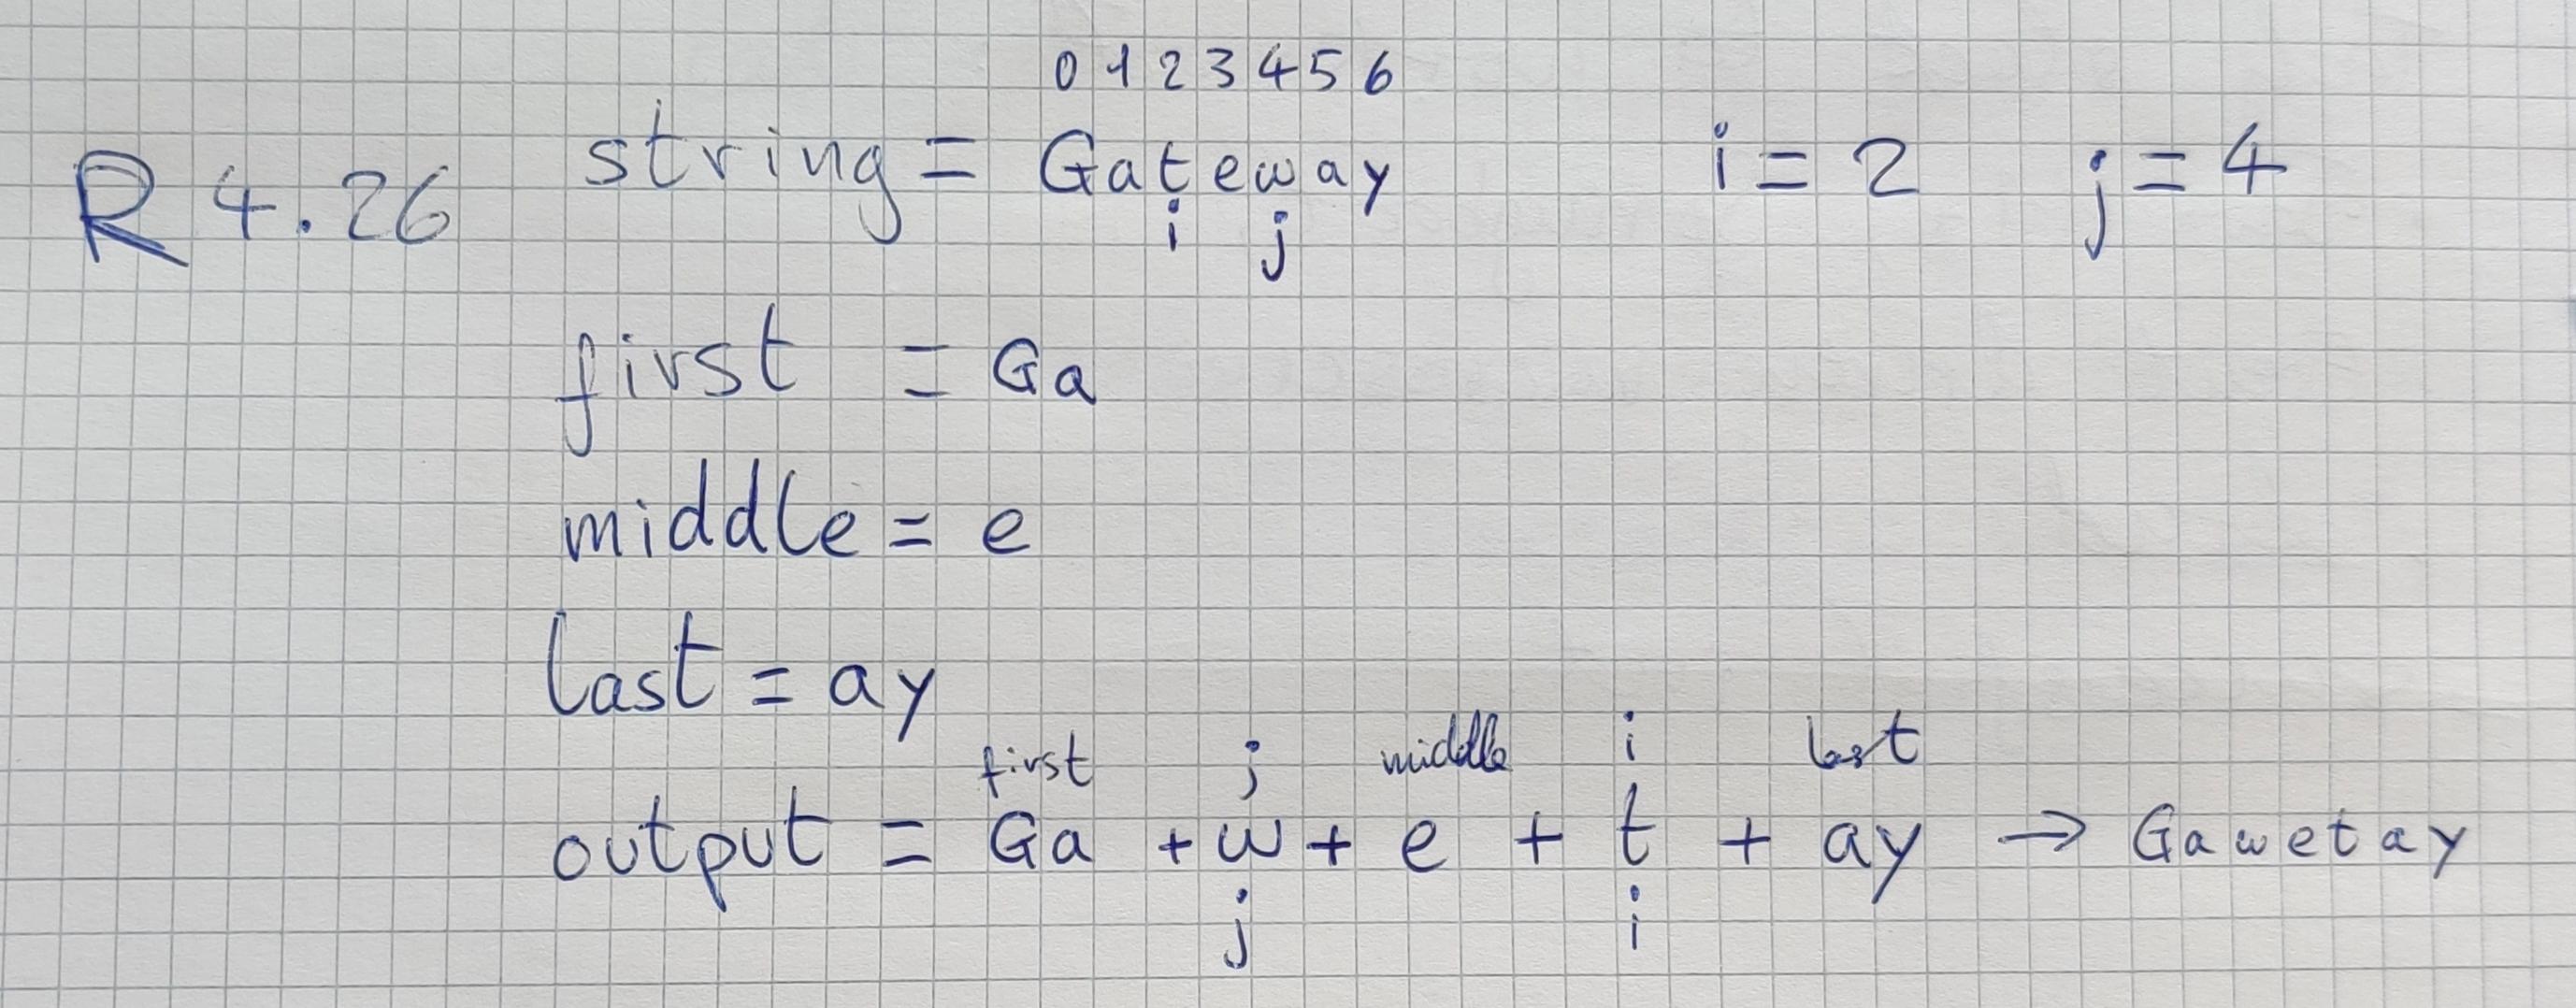 0 1 2 3 4 5 6
R 4.26 string = Gateway i = 2 j = 4
i j
first = Ga
middle = e
last = ay
first j middle i last
output = Ga + w + e + t + ay → Gawetay
j i